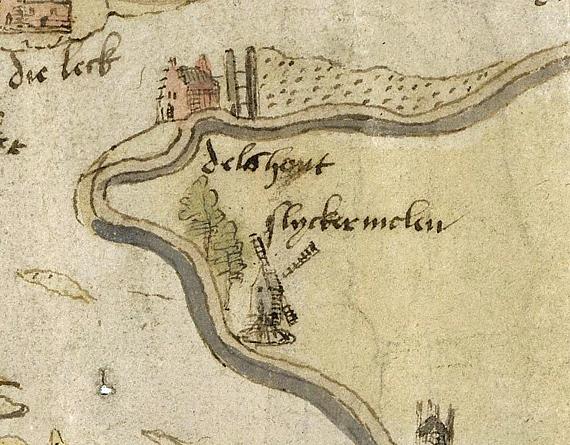 die leck
delshout
slyckermolen